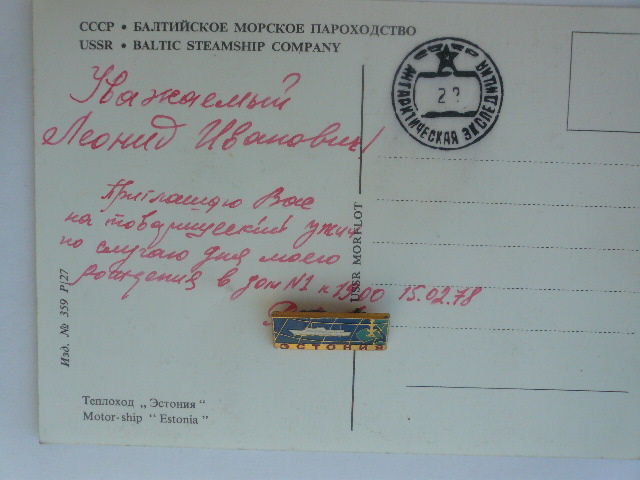 СССР • БАЛТИЙСКОЕ МОРСКОЕ ПАРОХОДСТВО
USSR • BALTIC STEAMSHIP COMPANY
Уважаемый
Леонид Иванович!
Приглашаю Вас
на товарищеский ужин
по случаю дня моего
рождения в дом №1 к 19.00 15.02.78
АНТАРКТИЧЕСКАЯ ЭКСПЕДИЦИЯ
USSR MORFLOT
Изд. № 359 Р|27
ЭСТОНИЯ
Теплоход „Эстония“
Motor-ship “Estonia”